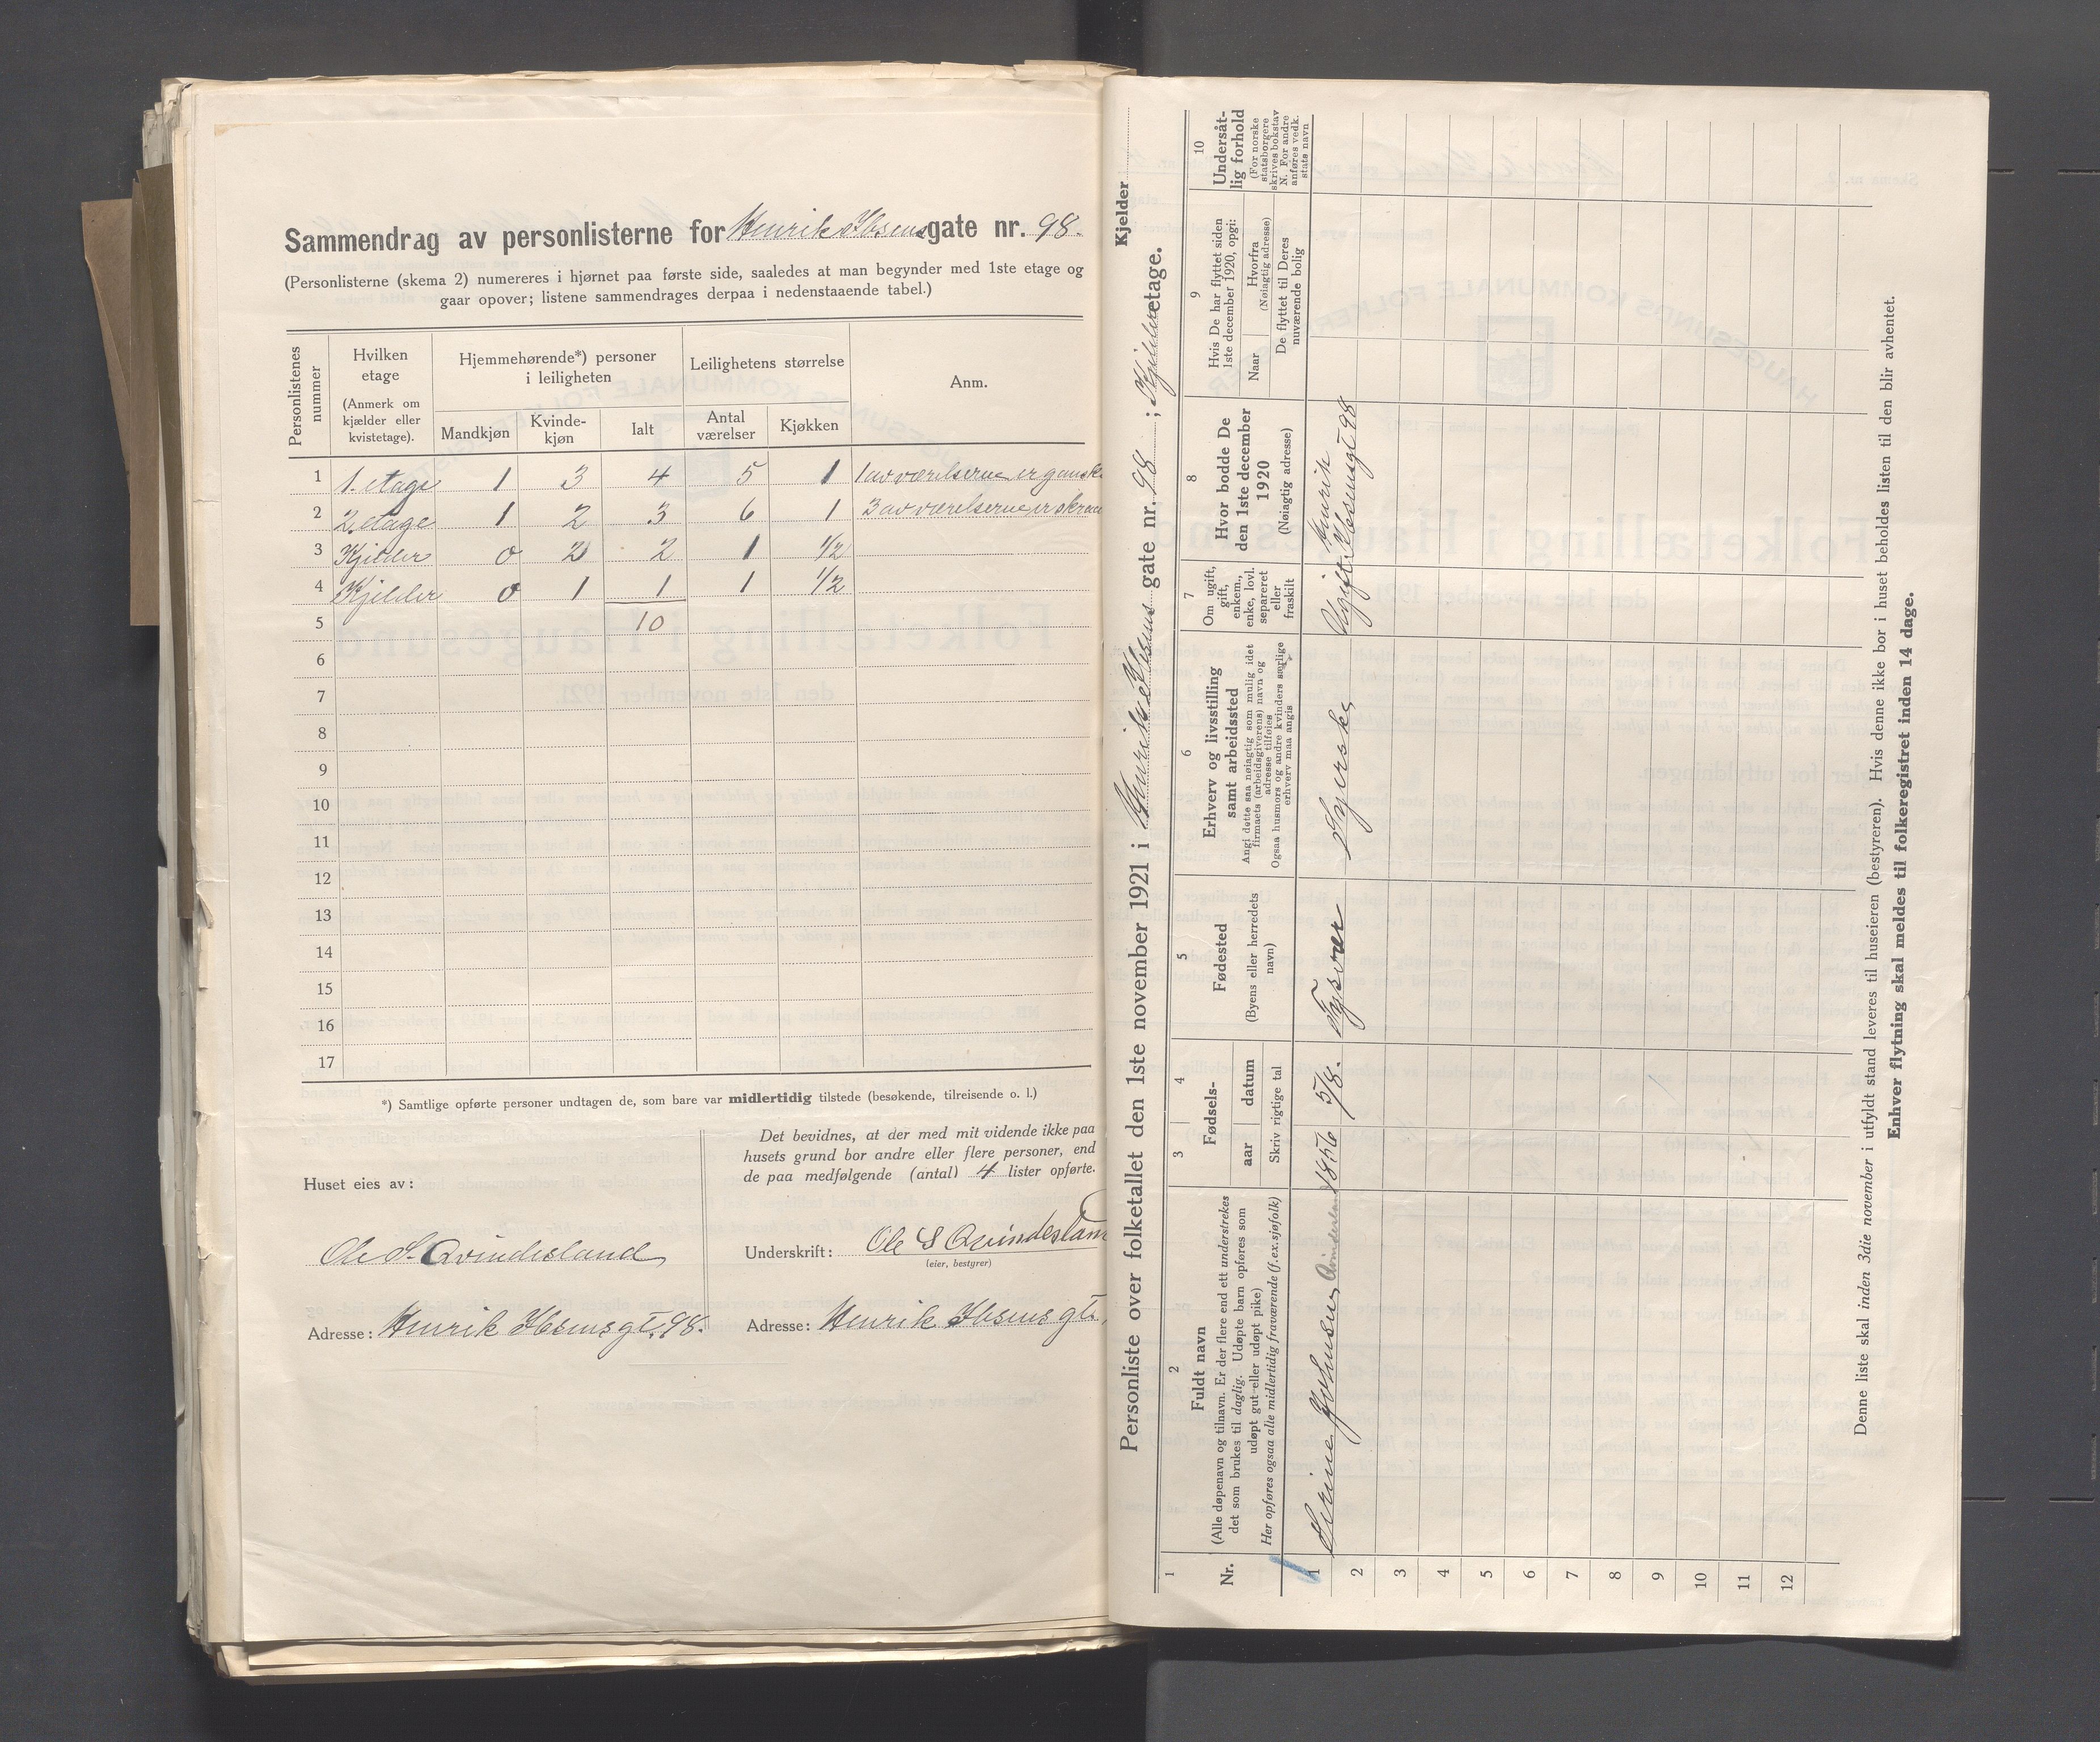 Sammendrag av personlisterne for Henrik Ibsens gate nr. 98.
(Personlisterne (skema 2) numereres i hjørnet paa første side, saaledes at man begynder med 1ste etage og
gaar opover; listene sammendrages derpaa i nedenstaaende tabel.)
Personlistenes nummer
Hvilken etage (Anmerk om kjælder eller kvistetage).
Hjemmehørende*) personer i leiligheten
Leilighetens størrelse
Anm.
Mandkjøn Kvinde-kjøn Ialt Antal værelser Kjøkken
1 1. etage 1 3 4 5 1 1 av værelserne er ganske
2 2. etage 1 2 3 6 1 3 av værelserne er skraa
3 Kjelder 0 2 2 1 1/2
4 Kjelder 0 1 1 1 1/2
5 10
6
7
8
9
10
11
12
13
14
15
16
17
*) Samtlige opførte personer undtagen de, som bare var midlertidig tilstede (besøkende, tilreisende o. l.)
Huset eies av:
Ole S. Qvindesland
Adresse: Henrik Ibsens gt. 98.
Det bevidnes, at der med mit vidende ikke paa
husets grund bor andre eller flere personer, end
de paa medfølgende (antal) 4 lister opførte.
Underskrift: Ole S Qvindesland
(eier, bestyrer)
Adresse: Henrik Ibsens gt.
Kjelder
Personliste over folketallet den 1ste november 1921 i Henrik Ibsens gate nr. 98 ; Kjelder etage.
1
Nr.
2
Fuldt navn
(Alle døpenavn og tilnavn. Er der flere end ett understrekes
det som brukes til daglig. Udøpte barn opføres som
udøpt gut eller udøpt pike)
Her opføres ogsaa alle midlertidig fraværende (f.ex. sjøfolk)
3 4
Fødsels-
aar datum
Skriv rigtige tal
5
Fødested
(Byens eller herredets
navn)
6
Erhverv og livsstilling
samt arbeidssted
Angi dette saa nøiagtig som mulig idet
firmaets (arbeidsgiverens) navn og
adresse tilføies
Ogsaa husmors og andre kvinders særlige
erhverv maa angis
7
Om ugift,
gift,
enkem.,
enke, lovl.
separeret
eller
fraskilt
8
Hvor bodde De
den 1ste december
1920
(Nøiagtig adresse)
9
Hvis De har flyttet siden
1ste december 1920, opgi:
Naar
Hvorfra
(Nøiagtig adresse)
De flyttet til Deres
nuværende bolig
10
Undersåt-
lig forhold
(For norske
statsborgere
skrives bokstav
N. For andre
anføres vedk.
stats navn
1 Serine Johnsen Qvindesland 1856 5/8. Tysvær Syerske Ugift Henrik Ibsensgt 98
2
3
4
5
6
7
8
9
10
11
12
Denne liste skal inden 3die november i utfyldt stand leveres til huseieren (bestyreren). Hvis denne ikke bor i huset beholdes listen til den blir avhentet.
Enhver flytning skal meldes til folkeregistret inden 14 dage.